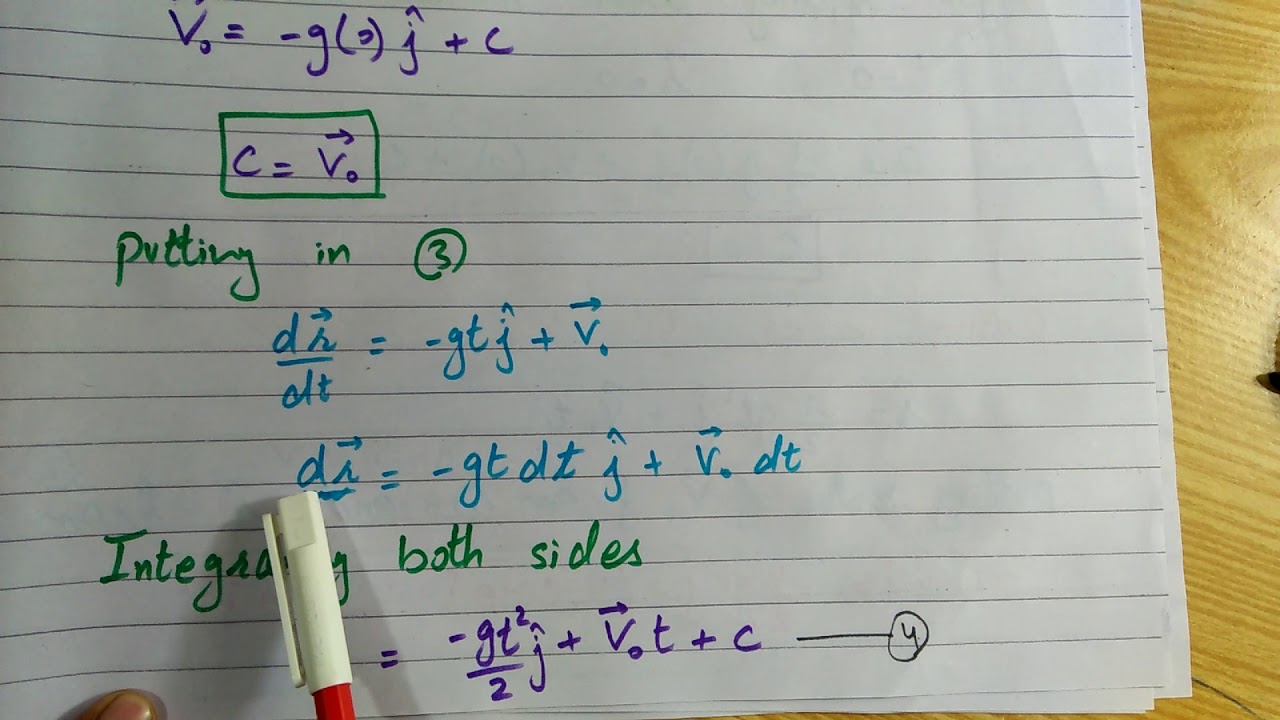 V₀ = -g(0) ĵ + c
C = V⃗₀
Putting in ③
dr⃗/dt = -gt ĵ + V⃗₀
dr⃗ = -gt dt ĵ + V⃗₀ dt
both sides
= -gt²/2 ĵ + V⃗₀t + c — ④